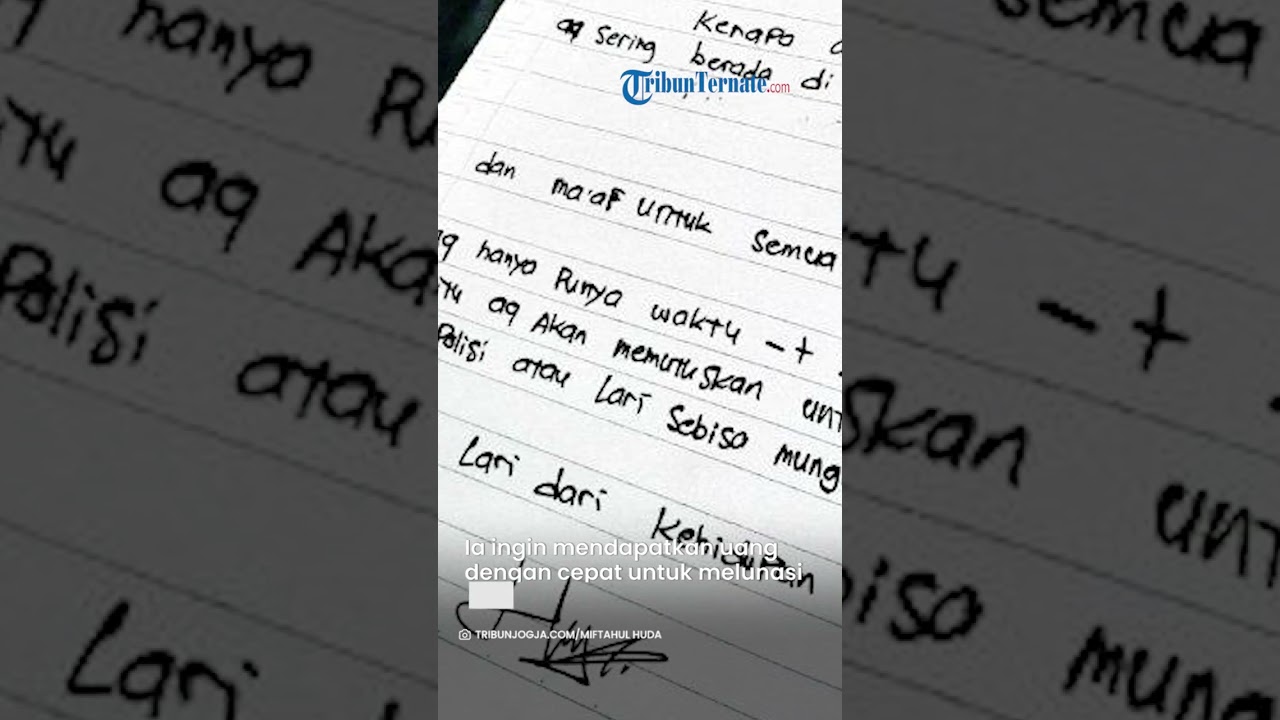 Kenapo
aq sering berada di
TribunTernate.com
dan ma'af untuk semua
aq hanyo Punya waktu -+
itu aq Akan memutuskan unt
Polisi atau Lari Sebiso mung
Lari dari Kehidupan
Ia ingin mendapatkan uang
dengan cepat untuk melunasi
TRIBUNJOGJA.COM/MIFTAHUL HUDA